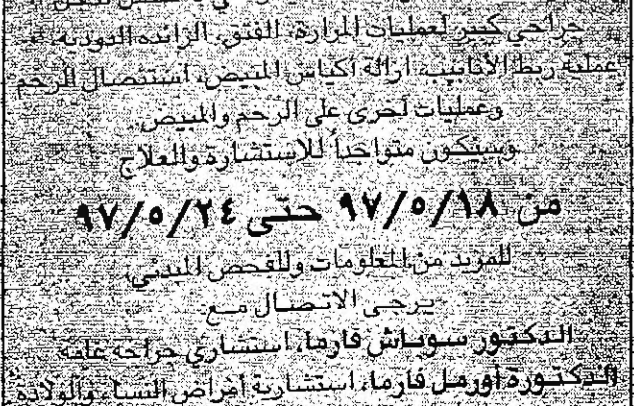 جراحي كبير لعمليات المرارة، الفتق، الزائده الدوديه،
عملية ربط الأنابيب، ازالة أكياس المبيض، استئصال الرحم
وعمليات أخرى على الرحم والمبيض.
وسيكون متواجداً للاستشارة والعلاج
من ٩٧/٥/١٨ حتى ٩٧/٥/٢٤
للمزيد من المعلومات وللفحص المبدئي،
يرجى الاتصال مع:
الدكتور سوباش فارما، استشاري جراحه عامه
الدكتورة أورمل فارما، استشارية أمراض النساء والولادة